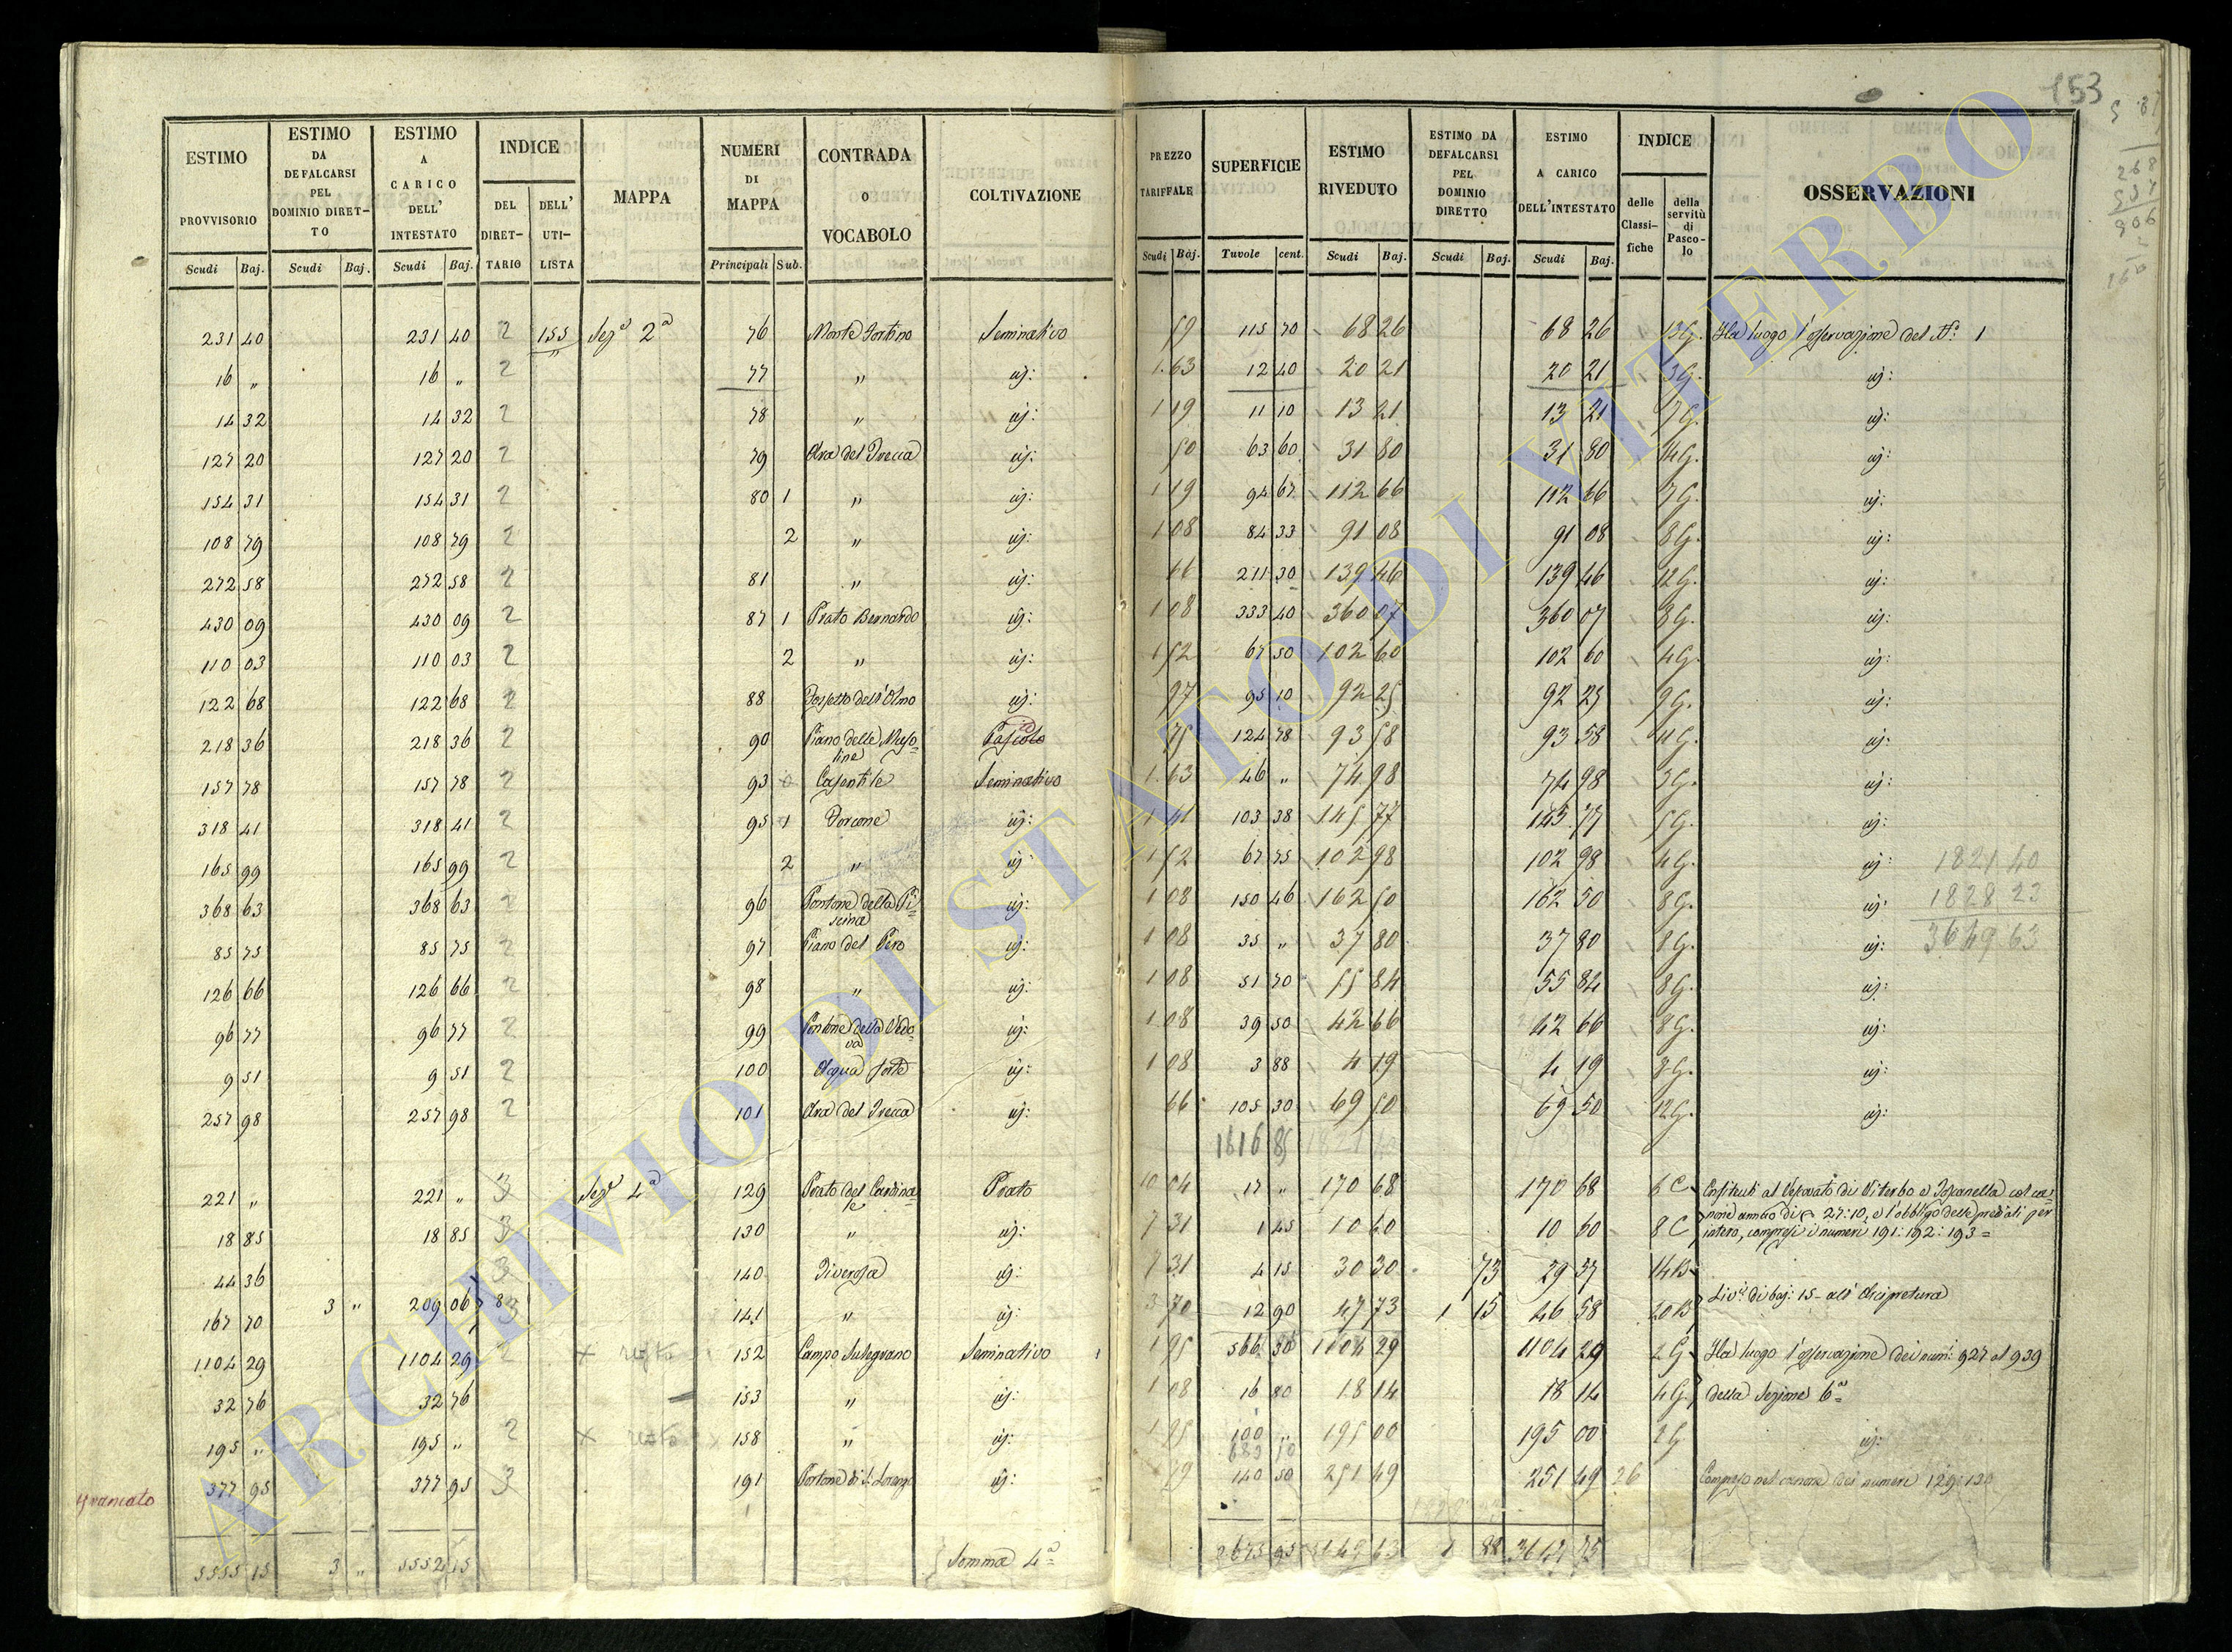 153
ESTIMO PROVVISORIO Scudi Baj.
ESTIMO DA DEFALCARSI PEL DOMINIO DIRETTO Scudi Baj.
ESTIMO A CARICO DELL' INTESTATO Scudi Baj.
INDICE DEL DIRETTARIO DELL' UTILISTA
MAPPA
NUMERI DI MAPPA Principali Sub.
CONTRADA o VOCABOLO
COLTIVAZIONE
PREZZO TARIFFALE Scudi Baj.
SUPERFICIE Tavole cent.
ESTIMO RIVEDUTO Scudi Baj.
ESTIMO DA DEFALCARSI PEL DOMINIO DIRETTO Scudi Baj.
ESTIMO A CARICO DELL'INTESTATO Scudi Baj.
INDICE delle Classifiche della servitù di Pascolo
OSSERVAZIONI
231 40 231 40 2 155 Sez.e 2a 76 Monte Fortino Seminativo 59 115 70 68 26 68 26 13G. Ha luogo l'osservazione del N.o 1
16 " 16 " 2 77 " id: 1.63 12 40 20 21 20 21 3G. id:
14 32 14 32 2 78 " id: 1 19 11 10 13 21 13 21 7G. id:
127 20 127 20 2 79 Ara del Trecca id: 50 63 60 31 80 31 80 14G. id:
154 31 154 31 2 80 1 " id: 1 19 94 67 112 66 112 66 7G. id:
108 79 108 79 2 2 " id: 1 08 84 33 91 08 91 08 8G. id:
272 58 272 58 2 81 " id: 66 211 30 139 46 139 46 12G. id:
430 09 430 09 2 87 1 Prato Bernardo id: 1 08 333 40 360 07 360 07 8G. id:
110 03 110 03 2 2 " id: 1 52 67 50 102 60 102 60 4G. id:
122 68 122 68 2 88 Fossetto dell'Olmo id: 97 95 10 92 25 92 25 9G. id:
218 36 218 36 2 90 Piano delle Muso=
line Pascolo 75 124 78 93 58 93 58 id:
157 78 157 78 2 93 Casentile Seminativo 1.63 46 " 74 98 74 98 3G. id:
318 41 318 41 2 95 1 Porcone id: 1 41 103 38 145 77 145 77 5G. id:
165 99 165 99 2 2 " id: 1 52 67 75 102 98 102 98 4G. id: 1821 40
368 63 368 63 2 96 Pontone della Pi=
scina id: 1 08 150 46 162 50 162 50 8G. id: 1828 23
85 75 85 75 2 97 Piano del Pero id: 1 08 35 " 37 80 37 80 8G. id: 3649 63
126 66 126 66 2 98 " id: 1 08 51 70 55 84 55 84 8G. id:
96 77 96 77 2 99 Pontone della Vedo=
va id: 1.08 39 50 42 66 42 66 8G. id:
9 51 9 51 2 100 Acqua forte id: 1 08 3 88 4 19 4 19 8G. id:
257 98 257 98 2 101 Ara del Trecca id: 66 105 30 69 50 69 50 12G. id:
1616 85 1821 40
221 " 221 " 3 Sez.e 4a 129 Prato del Cardina=
le Prato 10 04 17 " 170 68 170 68 6C Enfiteuti al Vescovato di Viterbo e Toscanella col ca=
none annuo di 27:10, e l'obbligo delle prediali per
18 85 18 85 3 130 " id: 7 31 1 45 10 60 10 60 8C intero, compresi i numeri 191: 192: 193 =
44 36 3 140 Piverosa id: 7 31 4 15 30 30 73 29 57 14B
167 70 3 " 209 06 8 3 141 " id: 3 70 12 90 47 73 1 15 46 58 20B Liv.i di baj: 15 all' Arcipretura
1104 29 1104 29 2 resto 152 Campo Sulegrano Seminativo 1 95 566 30 1104 29 1104 29 2G Ha luogo l'osservazione dei num: 927 al 939
32 76 32 76 153 " id: 1 08 16 80 18 14 18 14 4G. della Sezione 6a
195 " 195 " 2 resto 158 " id: 1 95 100 " 195 00 195 00 2G id:
683 10
gravato 377 95 377 95 3 191 Pontone di S. Lorenzo id: 140 50 251 49 251 49 26 Compreso nel canone dei numeri 129: 130
5555 15 3 " 5552 15 Somma 4a 3649 63 1 88
ARCHIVIO DI STATO DI VITERBO